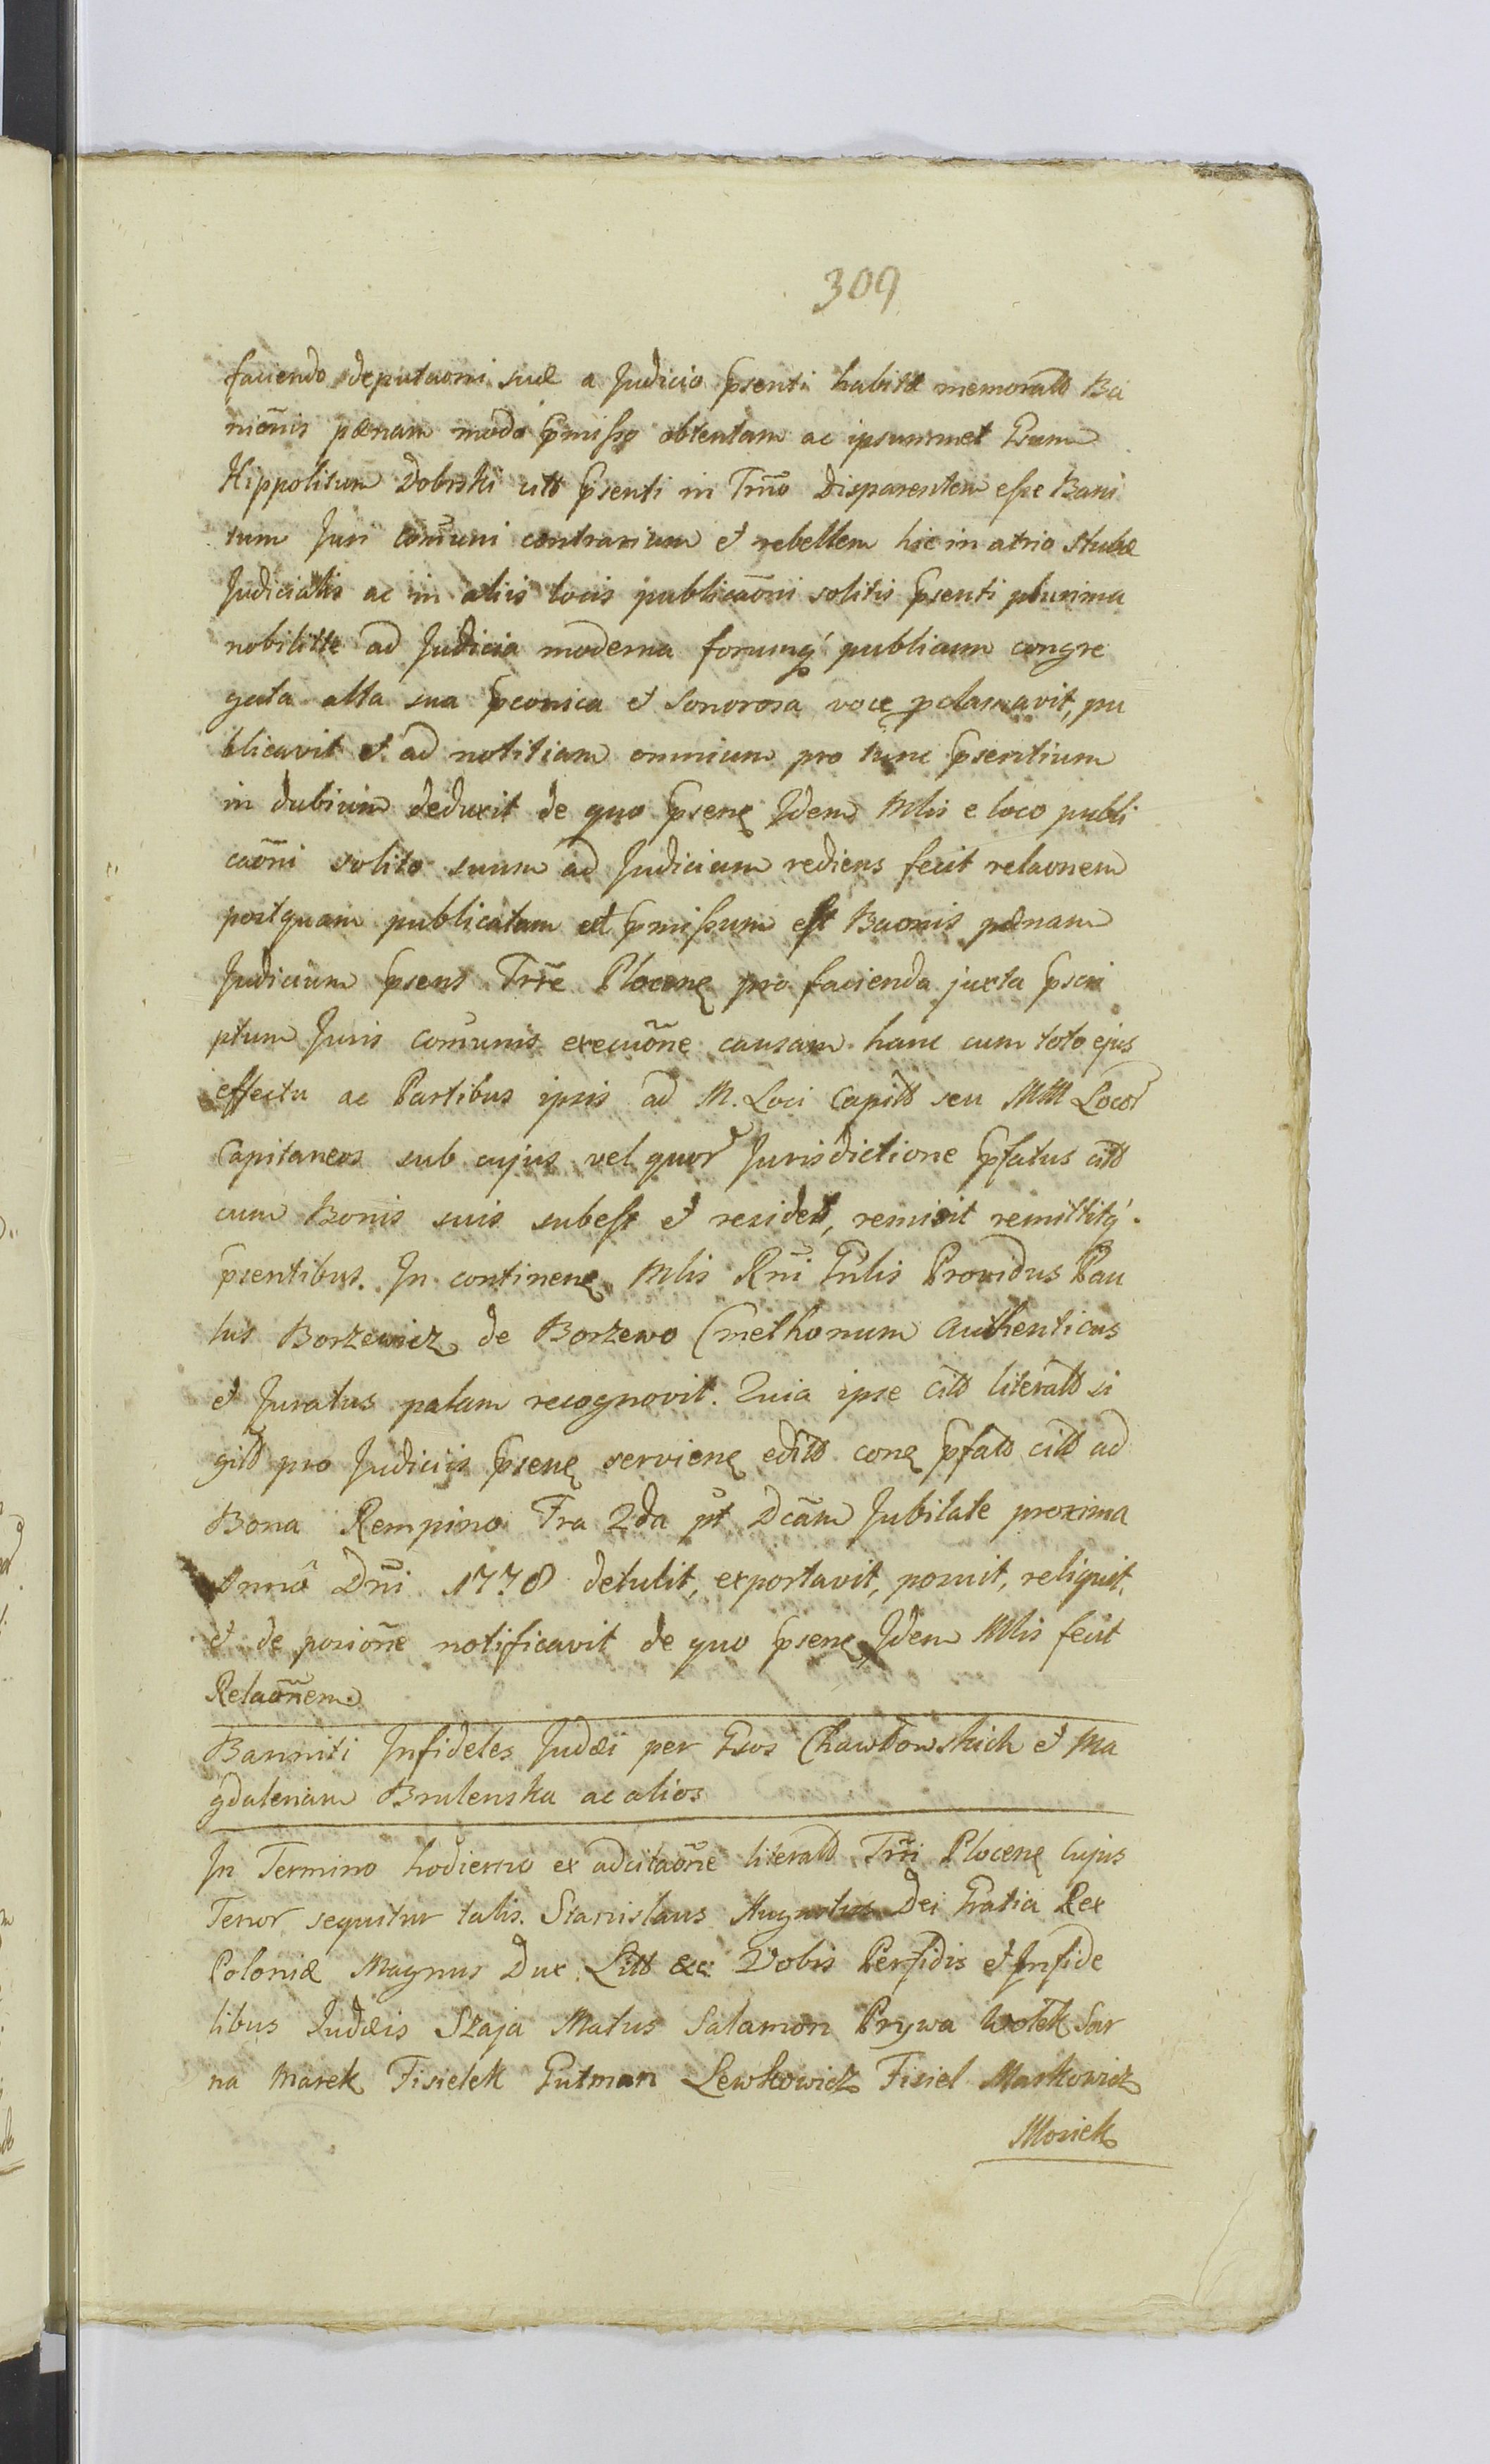 309
faciendo deputaoni suæ a Judicio psenti habitæ memorato Ba
niõnis pænam modo pmisso obtentam ac ipsummet Gsum
Hippolitum Dobrski citt psenti in Trno disparentem esse Bani
tum Juri cõmuni contrarium et rebellem hic in atrio stubæ
Judicialis ac in aliis locis publicaõni solitis psenti plurima
nobilitte ad Judicia moderna forumq́ publicum congre
gata alta sua pconica et sonorosa voce pclamavit, pu
blicavit et ad notitiam omnium pro tunc psentium
in dubium deduxit de quo psenę Idem Mlis e loco publi
caõni solito suum ad Judicium rediens fecit relaonem
postquam publicatam et pmissum est Baonis pænam
Judicium psens Trre Plocenę pro facienda juxta pscri
ptum Juris cõmunis execuõne causam hanc cum toto ejus
effectu ac Partibus ipsis ad M. Loci Capitt seu MM Locor
Capitaneos sub cujus vel quor Jurisdictione pfatus citt
cum Bonis suis subest et residet, remisit remittitq́.
psentibus. In continenę Mlis Rni Gnlis Providus Pau
lus Borzewicz de Borzewo Cmethonum Authenticus
et Juratus palam recognovit. Quia ipse citt literatt si
gitt pro Judiciis psenę servienę editt conę pfatt citt ad
Bona Rempino Fra 2da pt Dcãm Jubilate proxima
Anno Dni 1778 detulit, exportavit, posuit, reliquit,
et de posiõne notificavit de quo psenę Idem Mlis fecit
Relaõnem
Banniti Infideles Judæi per Gsos Chawdowskich et Ma
gdalenam Brulenska ac alios
In Termino hodierno ex adcitaõne literatt Trri Plocenę Cujus
Tenor sequitur talis. Stanislaus Augustus Dei Gratia Rex
Poloniæ Magnus Dux Litt &c: Vobis Perfidis et Infide
libus Judæis Szaja Matus Salamon Prywa Wolek Sar
na Marek Fisielek Gutman Lewkowicz Fisiel Markowicz
Mosiek